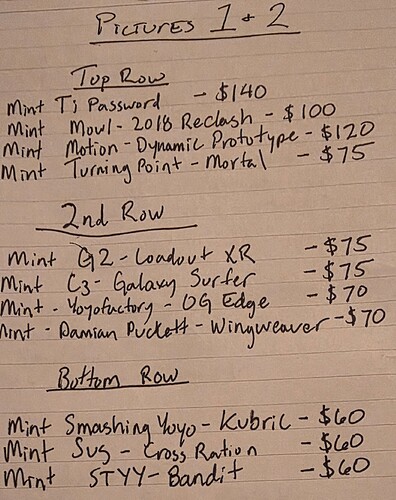 Pictures 1 + 2
Top Row
Mint Ti Password - $140
Mint Mowl - 2018 Reclash - $100
Mint Motion - Dynamic Prototype - $120
Mint Turning Point - Mortal - $75
2nd Row
Mint G2 - Loadout XR - $75
Mint C3 - Galaxy Surfer - $75
Mint - Yoyofactory - OG Edge - $70
Mint - Damian Puckett - Wingweaver - $70
Bottom Row
Mint Smashing Yoyo - Kubric - $60
Mint Sus - Cross Ration - $60
Mint STYY - Bandit - $60